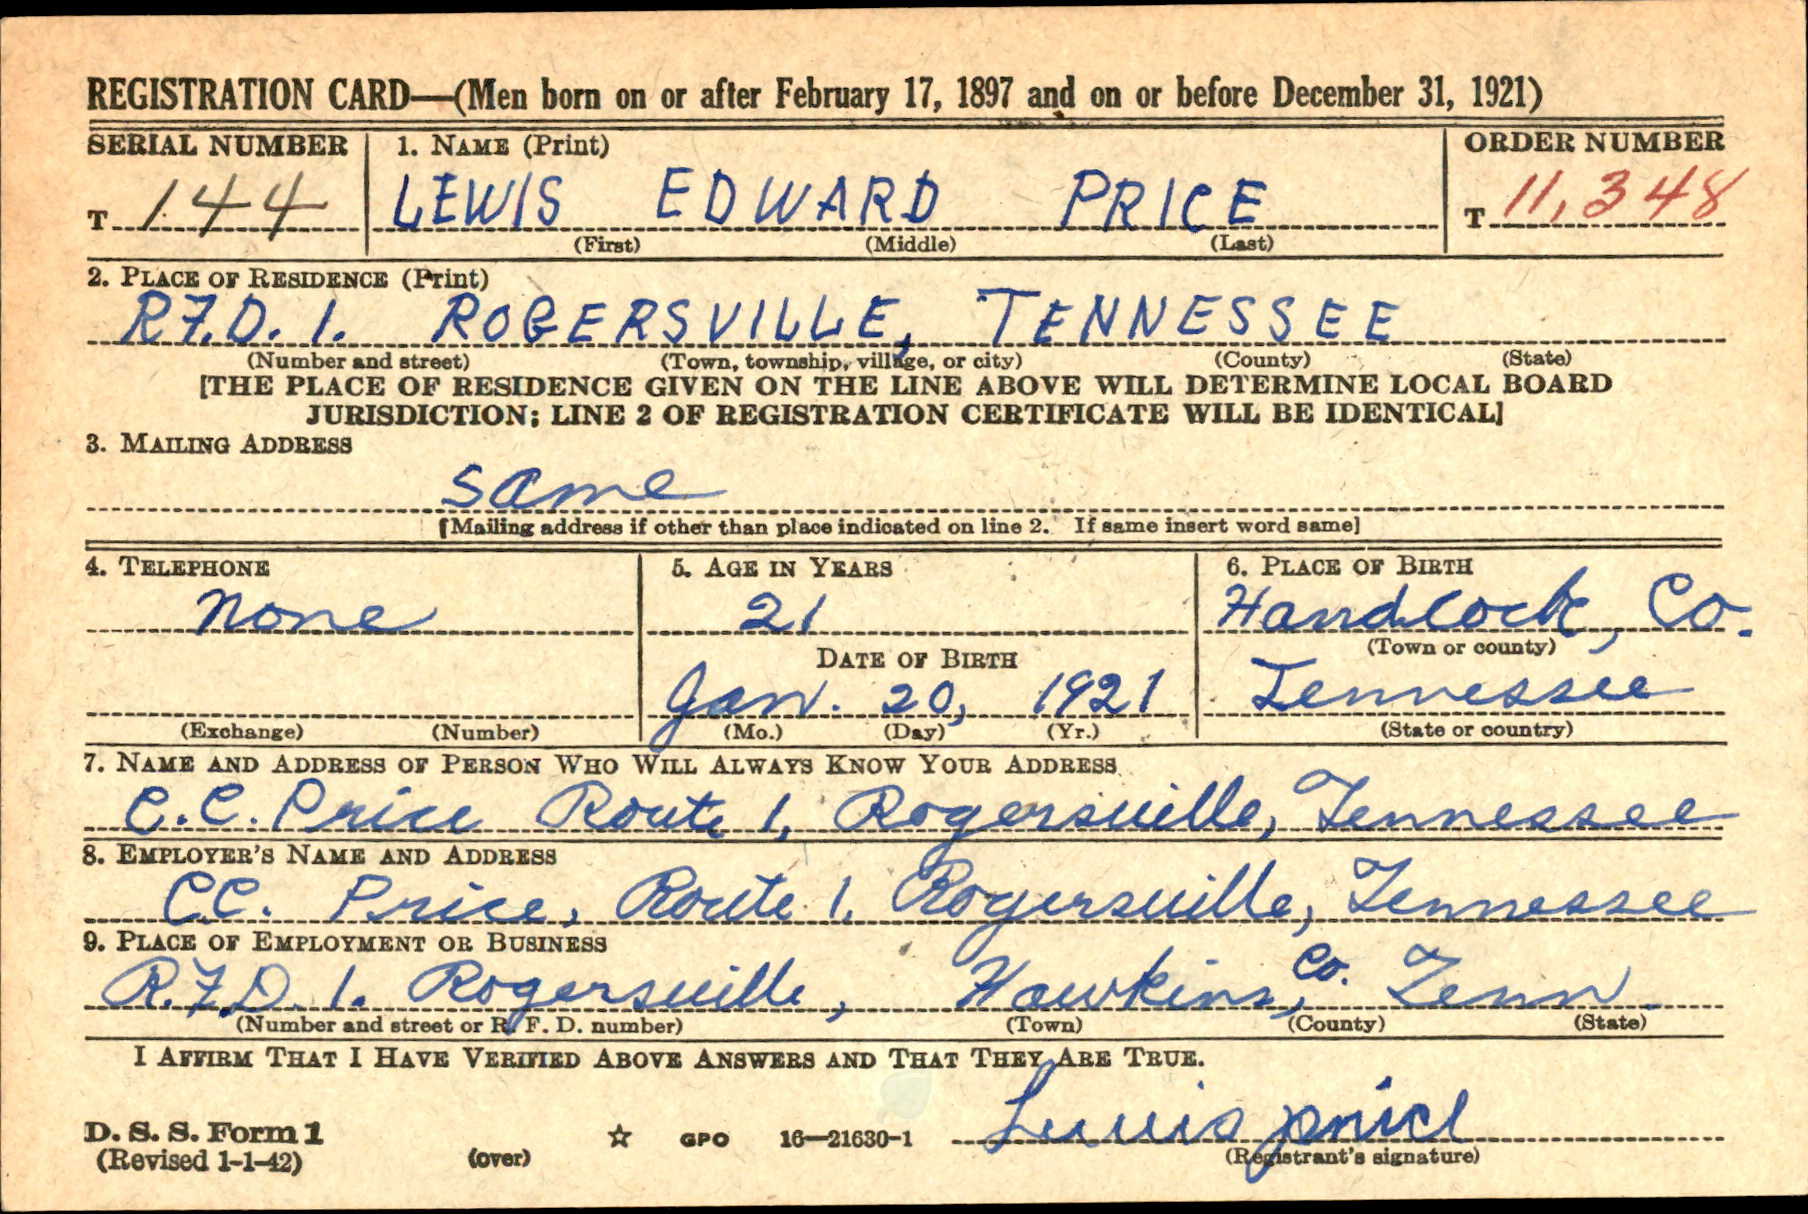 REGISTRATION CARD—(Men born on or after February 17, 1897 and on or before December 31, 1921)
SERIAL NUMBER 1. NAME (Print) ORDER NUMBER
T 144 LEWIS EDWARD PRICE T 11,348
(First) (Middle) (Last)
2. PLACE OF RESIDENCE (Print)
R.F.D. 1. ROGERSVILLE, TENNESSEE
(Number and street) (Town, township, village, or city) (County) (State)
[THE PLACE OF RESIDENCE GIVEN ON THE LINE ABOVE WILL DETERMINE LOCAL BOARD
JURISDICTION; LINE 2 OF REGISTRATION CERTIFICATE WILL BE IDENTICAL]
3. MAILING ADDRESS
Same
[Mailing address if other than place indicated on line 2. If same insert word same]
4. TELEPHONE 5. AGE IN YEARS 6. PLACE OF BIRTH
None 21 Handcock, Co.
DATE OF BIRTH (Town or county)
Jan. 20, 1921 Tennessee
(Exchange) (Number) (Mo.) (Day) (Yr.) (State or country)
7. NAME AND ADDRESS OF PERSON WHO WILL ALWAYS KNOW YOUR ADDRESS
C.C. Price Route 1, Rogersville, Tennessee
8. EMPLOYER'S NAME AND ADDRESS
C.C. Price, Route 1. Rogersville, Tennessee
9. PLACE OF EMPLOYMENT OR BUSINESS
R.F.D. 1. Rogersville, Hawkins, Co. Tenn.
(Number and street or R. F. D. number) (Town) (County) (State)
I AFFIRM THAT I HAVE VERIFIED ABOVE ANSWERS AND THAT THEY ARE TRUE.
Lewis price
D. S. S. Form 1
(Revised 1-1-42) (over) ☆ GPO 16—21630-1 (Registrant's signature)